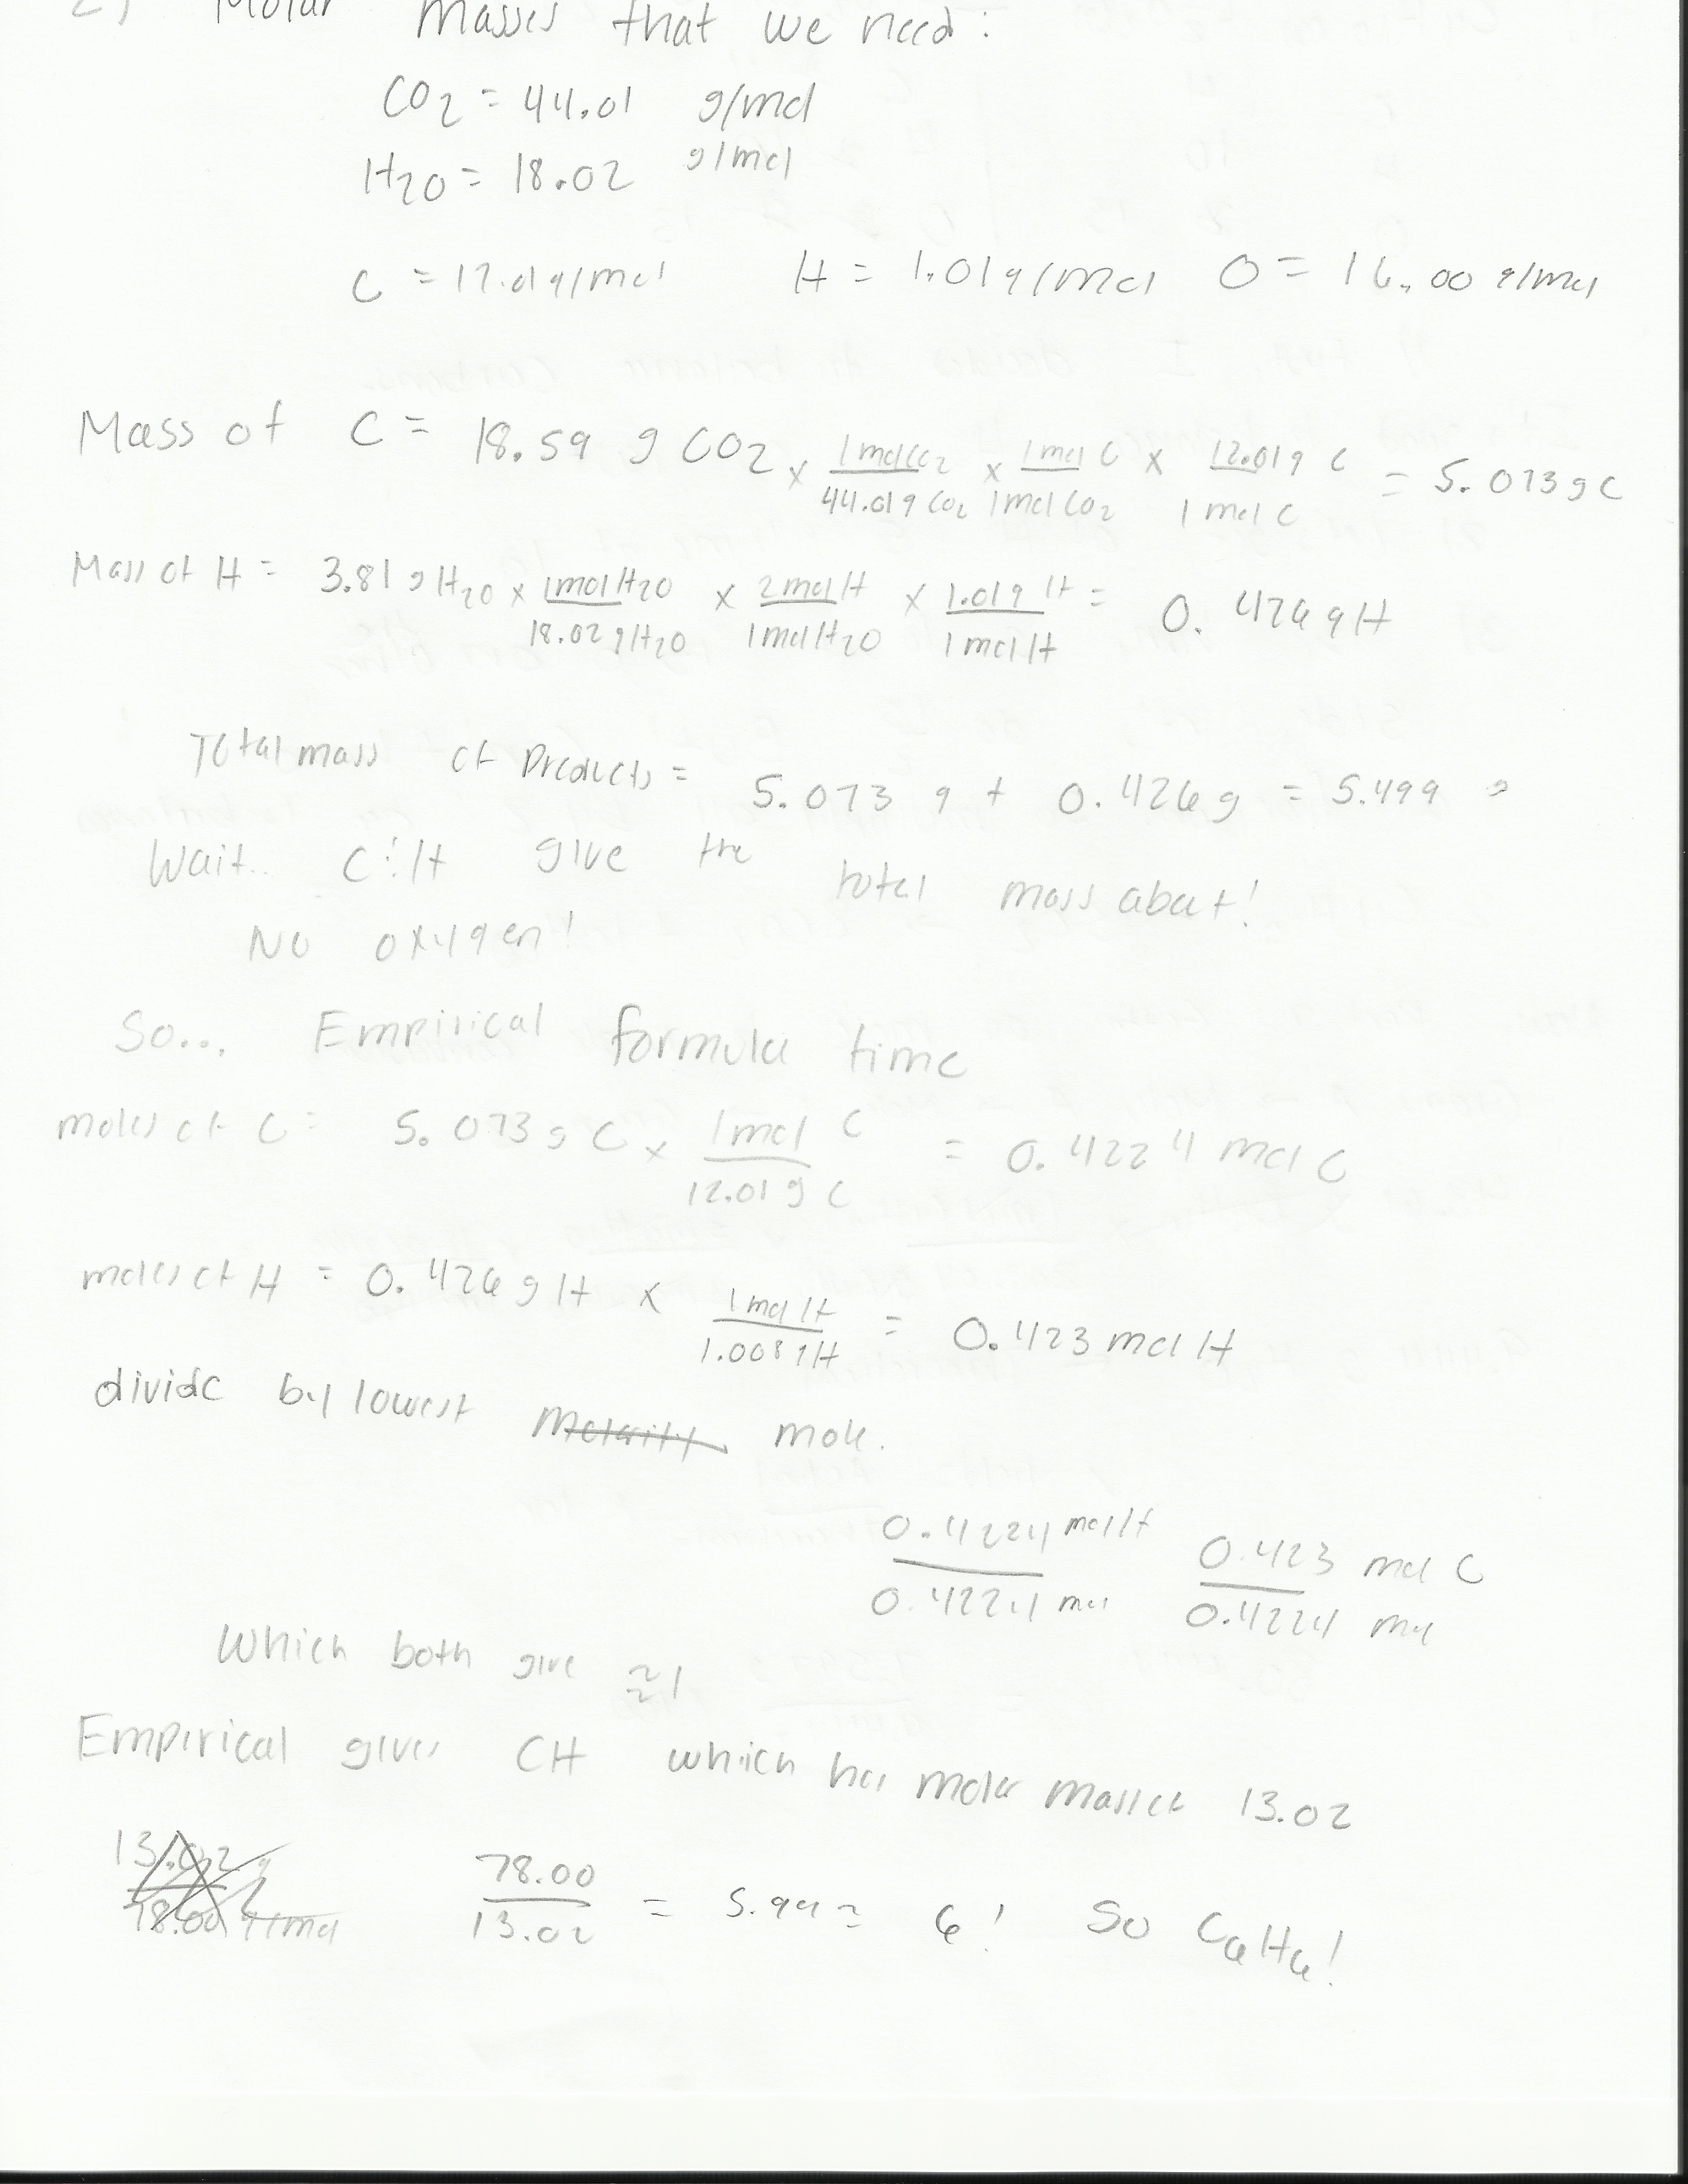 2) Molar masses that we need:
CO2 = 44.01 g/mol
H2O = 18.02 g/mol
C = 12.01 g/mol H = 1.01 g/mol O = 16.00 g/mol
Mass of C = 18.59 g CO2 × 1 mol CO2 / 44.01 g CO2 × 1 mol C / 1 mol CO2 × 12.01 g C / 1 mol C = 5.073 g C
Mass of H = 3.81 g H2O × 1 mol H2O / 18.02 g H2O × 2 mol H / 1 mol H2O × 1.01 g H / 1 mol H = 0.426 g H
Total mass of Products = 5.073 g + 0.426 g = 5.499 g
Wait.. C & H give the total mass about!
No oxygen!
So... Empirical formula time
moles of C = 5.073 g C × 1 mol C / 12.01 g C = 0.4224 mol C
moles of H = 0.426 g H × 1 mol H / 1.008 g H = 0.423 mol H
divide by lowest Molarity mole.
0.4224 mol H / 0.4224 mol 0.423 mol C / 0.4224 mol
Which both give ≈1
Empirical gives CH which has molar mass of 13.02
13.02 g / 78.00 g/mol 78.00 / 13.02 = 5.99 ≈ 6! So C6H6!